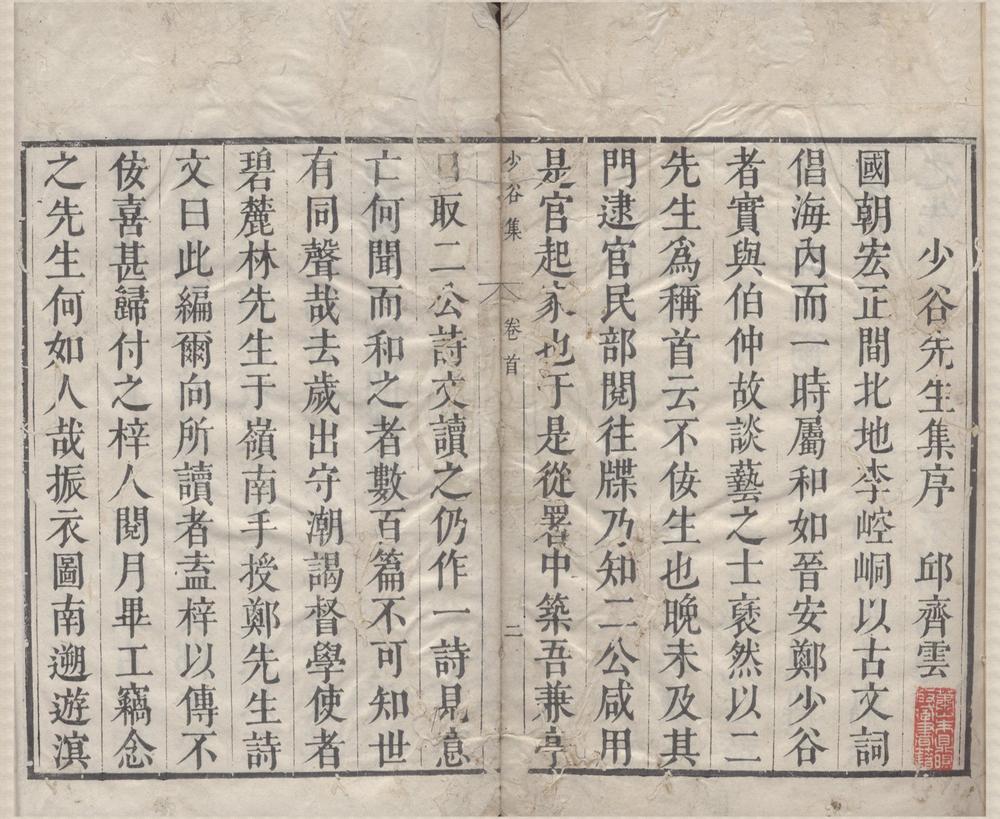 少谷先生集序 邱齊雲
國朝宏正間北地李崆峒以古文詞
倡海內而一時屬和如晉安鄭少谷
者實與伯仲故談藝之士裦然以二
先生爲稱首云不佞生也晚未及其
門逮官民部閱往牒乃知二公咸用
是官起家也于是從署中築吾兼亭
少谷集 卷首 二
日取二公詩文讀之仍作一詩見意
亡何聞而和之者數百篇不可知世
有同聲哉去歲出守潮謁督學使者
碧麓林先生于嶺南手授鄭先生詩
文曰此編爾向所讀者盍梓以傳不
佞喜甚歸付之梓人閱月畢工竊念
之先生何如人哉振衣圖南遡遊滇